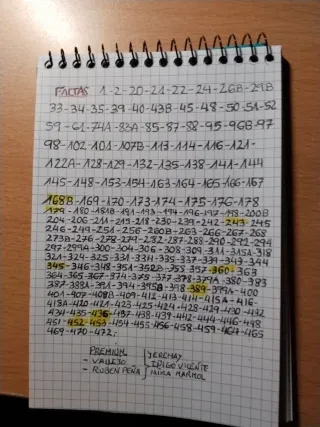 FALTAS 1-2-20-21-22-24-26B-29B
33-34-35-39-40-43B-45-48-50-51-52
59-61-74A-83A-85-87-88-95-96B-97
98-102-101-107B-113-114-116-121-
122A-128-129-132-135-138-141-144
145-148-153-154-163-164-165-166-167
168B-169-170-173-174-175-176-178
179-180-181B-191-193-194-196-197-198-200B
204-206-211-213-218-230-239-242-243-245
246-249-254-256-260B-263-266-267-268
273B-276-278-279-282-287-288-290-292-294
297-299A-300-304-306-308-309-311-315A-318
321-324-325-331-333-335-337-343-344
345-346-348-351-352B-353-357-360-363
364-365-367-374-375-377-378-379A-380-383
387-388A-391-394-395B-398-389-399A-400
401-407-408B-409-412-413-414-415A-416-
418A-420-421-423-425-424-428-429-430-432
434-435-436-437-438-439-442-444-446-448
451-452-453-454-455-456-458-459-464-465
469-470-472;
PREMIUM
- VALLEJO
- RUBEN PEÑA
YEREMAY
IÑIGO VICENTE
MIKA MARMOL